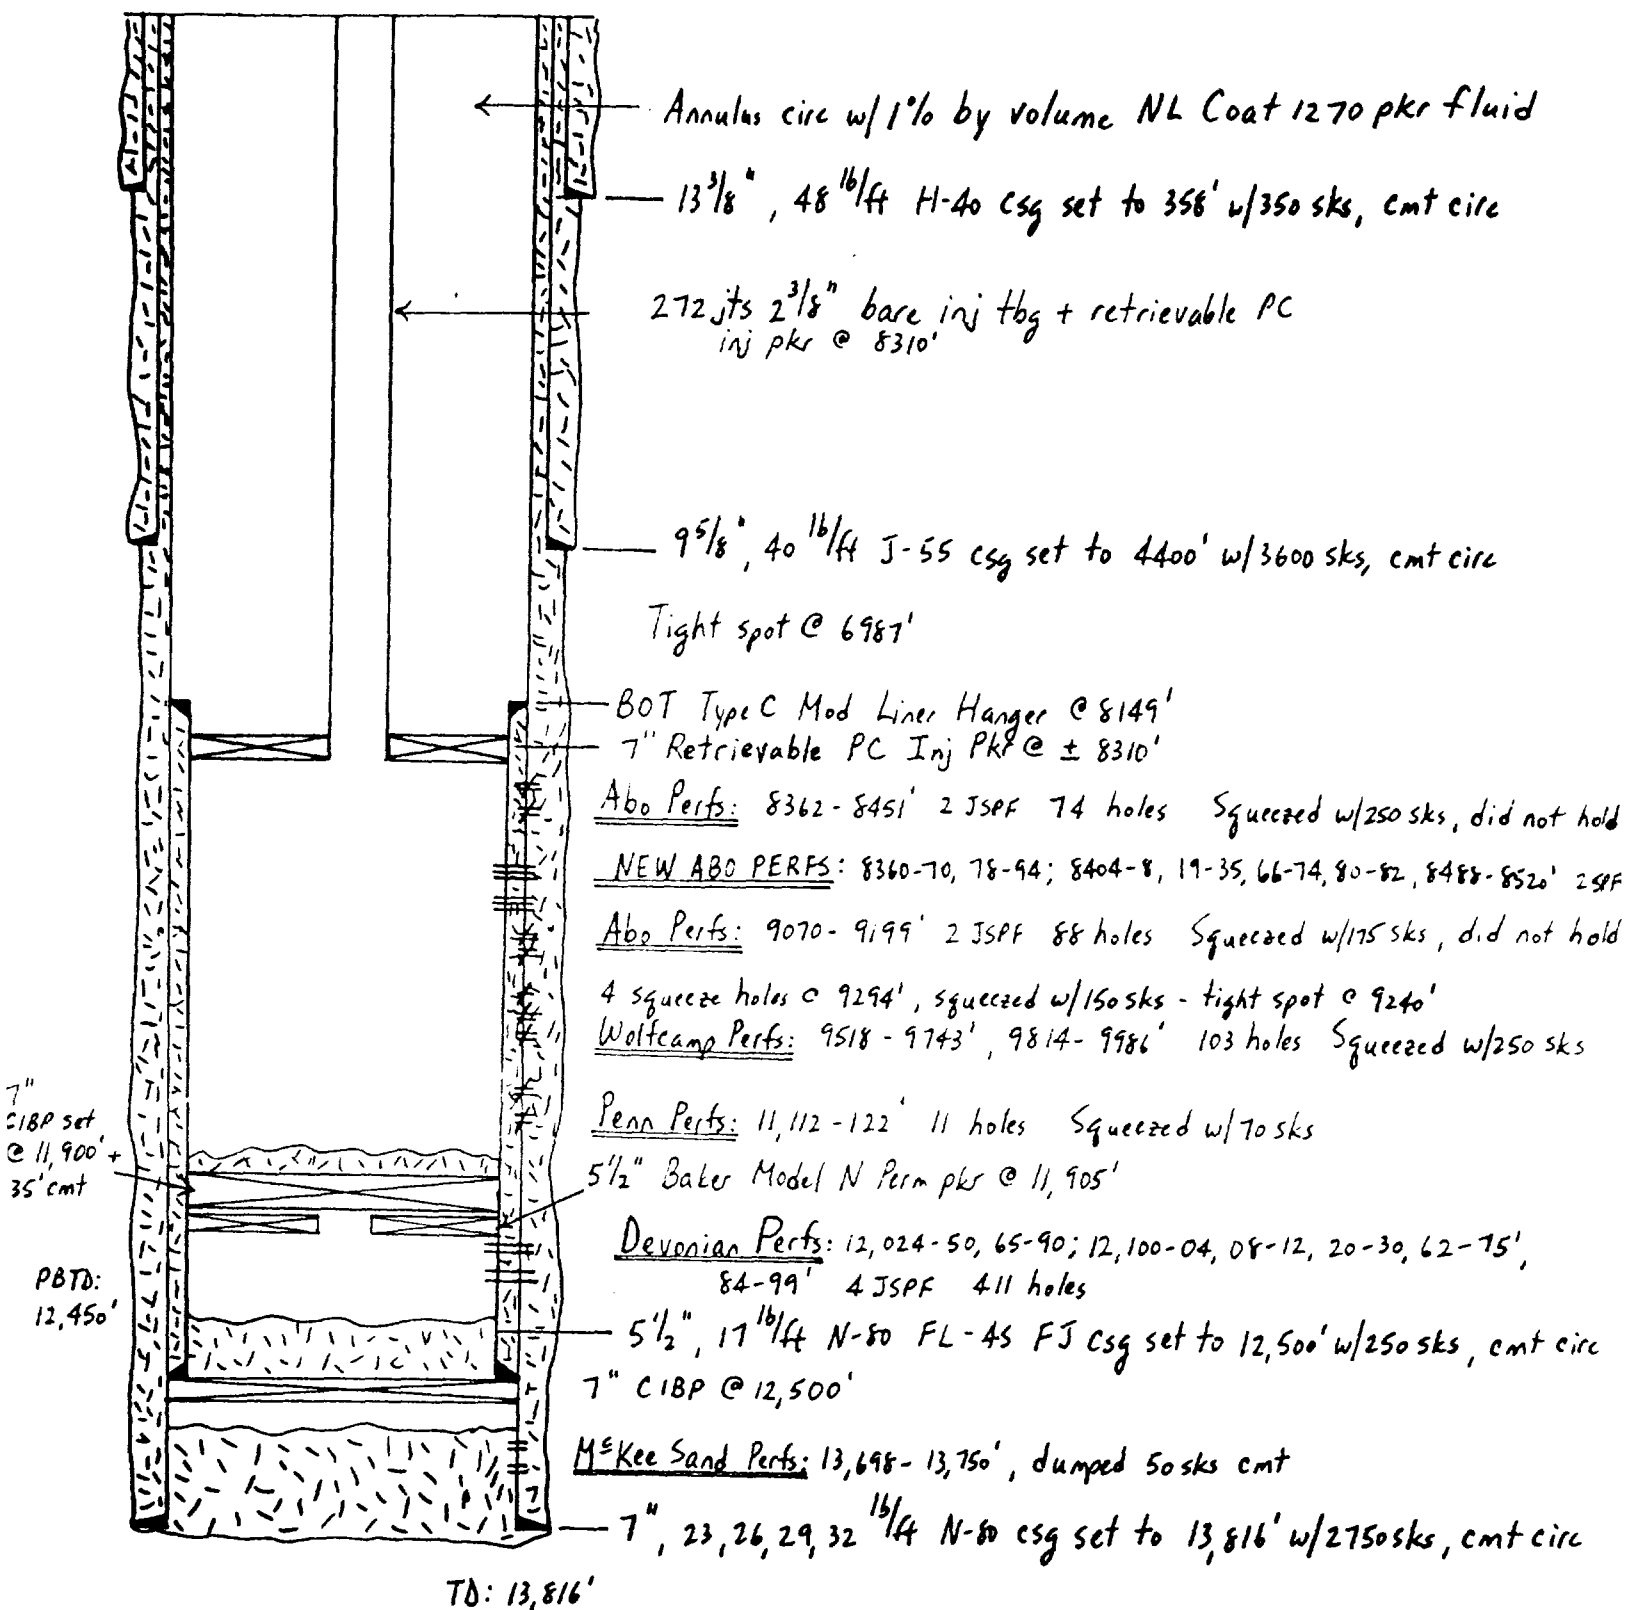 Annulus circ w/ 1% by volume NL Coat 1270 pkr fluid
13 3/8", 48 lb/ft H-40 csg set to 358' w/350 sks, cmt circ
272 jts 2 3/8" bare inj tbg + retrievable PC
inj pkr @ 8310'
9 5/8", 40 lb/ft J-55 csg set to 4400' w/3600 sks, cmt circ
Tight spot @ 6987'
BOT Type C Mod Liner Hanger @ 8149'
7" Retrievable PC Inj Pkr @ ± 8310'
Abo Perfs: 8362-8451' 2 JSPF 74 holes Squeezed w/250 sks, did not hold
NEW ABO PERFS: 8360-70, 78-94; 8404-8, 19-35, 66-74, 80-82, 8488-8520' 2 SPF
Abo Perfs: 9070-9199' 2 JSPF 88 holes Squeezed w/175 sks, did not hold
4 squeeze holes @ 9294', squeezed w/150 sks - tight spot @ 9240'
Wolfcamp Perfs: 9518-9743', 9814-9986' 103 holes Squeezed w/250 sks
7"
CIBP set
@ 11,900' +
35' cmt
Penn Perfs: 11,112-122' 11 holes Squeezed w/70 sks
5 1/2" Baker Model N Perm pkr @ 11,905'
Devonian Perfs: 12,024-50, 65-90; 12,100-04, 08-12, 20-30, 62-75',
84-99' 4 JSPF 411 holes
PBTD:
12,450'
5 1/2", 17 lb/ft N-80 FL-4S FJ csg set to 12,500' w/250 sks, cmt circ
7" CIBP @ 12,500'
McKee Sand Perfs: 13,698-13,750', dumped 50 sks cmt
7", 23, 26, 29, 32 lb/ft N-80 csg set to 13,816' w/2750 sks, cmt circ
TD: 13,816'